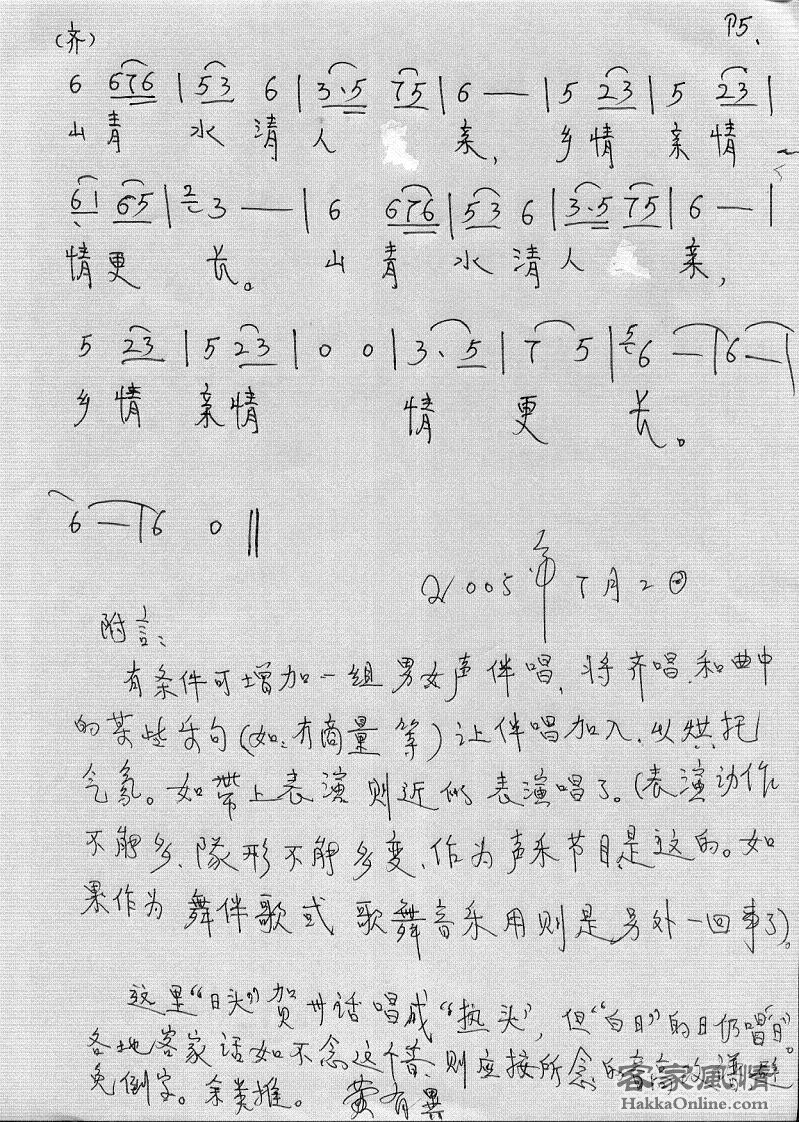 P5.
(齐)
6 676 | 53 6 | 3·5 75 | 6 — | 5 23 | 5 23 |
山青 水清人 亲, 乡情 亲情
61 65 | 2 3 — | 6 676 | 53 6 | 3·5 75 | 6 — |
情更 长。 山青 水清人 亲,
5 23 | 5 23 | 0 0 | 3· 5 | 7 5 | 5 6 — | 6 — |
乡情 亲情 情 更 长。
6 — | 6 0 ||
2005年7月20
附言:
有条件可增加一组男女声伴唱,将齐唱和曲中
的某些乐句(如:有商量等)让伴唱加入,以烘托
气氛。如带上表演则近似表演唱了。(表演动作
不能多、隊形不能多变,作为声乐节目是这的。如
果作为舞伴歌或歌舞音乐用则是另外一回事了)。
这里“日头”贺州话唱成“热头”,但“白日”的日仍唱“日”。
各地客家话如不念这个音,则应按所念的
免倒字。余类推。 黄有異
客家風情
HakkaOnline.com